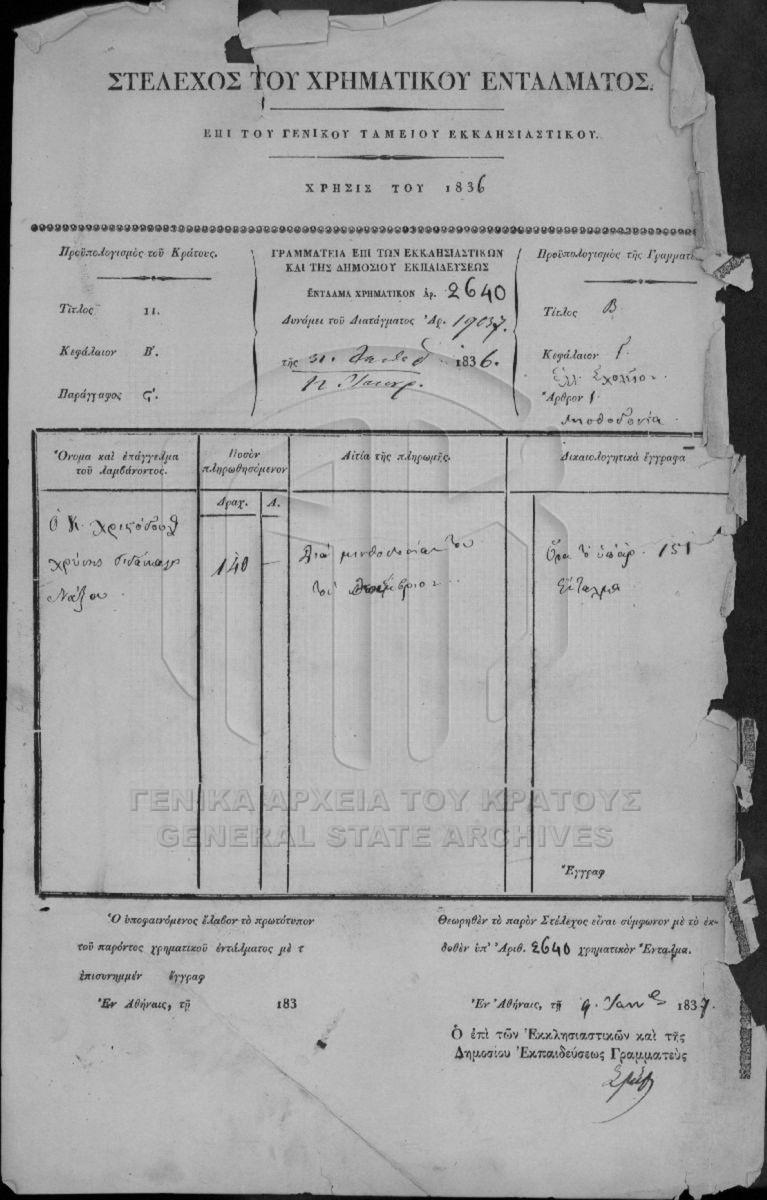 ΣΤΕΛΕΧΟΣ ΤΟΥ ΧΡΗΜΑΤΙΚΟΥ ΕΝΤΑΛΜΑΤΟΣ.
ΕΠΙ ΤΟΥ ΓΕΝΙΚΟΥ ΤΑΜΕΙΟΥ ΕΚΚΛΗΣΙΑΣΤΙΚΟΥ.
ΧΡΗΣΙΣ ΤΟΥ 1836
Προϋπολογισμὸς τοῦ Κράτους.
Τίτλος II.
Κεφάλαιον Β'.
Παράγραφος ς'.
ΓΡΑΜΜΑΤΕΙΑ ΕΠΙ ΤΩΝ ΕΚΚΛΗΣΙΑΣΤΙΚΩΝ
ΚΑΙ ΤΗΣ ΔΗΜΟΣΙΟΥ ΕΚΠΑΙΔΕΥΣΕΩΣ
ΕΝΤΑΛΜΑ ΧΡΗΜΑΤΙΚΟΝ Αρ. 2640
Δυνάμει τοῦ Διατάγματος Ἀρ. 19037.
τῆς 31. 1836.
12
Προϋπολογισμὸς τῆς Γραμματε
Τίτλος Β
Κεφάλαιον Γ.
Ἑλλ. Σχολεῖον
Ἄρθρον 1.
Μισθοδοσία
Ὄνομα καὶ ἐπάγγελμα
τοῦ λαμβάνοντος.
Ποσὸν
πληρωθησόμενον
Δραχ. Λ.
Αἰτία τῆς πληρωμῆς.
Δικαιολογητικὰ ἔγγραφα
Ὁ Κ.
Νάξου
140
Διὰ μισθοδοσίαν του
τοῦ
Ὅρα τὸ ὑπ' ἀρ. 151
Ἔνταλμα
Ἔγγραφ
Ὁ ὑποφαινόμενος ἔλαβον τὸ πρωτότυπον
τοῦ παρόντος χρηματικοῦ ἐντάλματος μὲ τ
ἐπισυνημμέν ἔγγραφ
Ἐν Ἀθήναις, τῇ 183
Θεωρηθὲν τὸ παρὸν Στέλεχος εἶναι σύμφωνον μὲ τὸ ἐκ-
δοθὲν ὑπ' Ἀριθ. 2640 χρηματικὸν Ἔνταλμα.
Ἐν Ἀθήναις, τῇ 9. 1837.
Ὁ ἐπὶ τῶν Ἐκκλησιαστικῶν καὶ τῆς
Δημοσίου Ἐκπαιδεύσεως Γραμματεὺς
ΓΕΝΙΚΑ ΑΡΧΕΙΑ ΤΟΥ ΚΡΑΤΟΥΣ
GENERAL STATE ARCHIVES